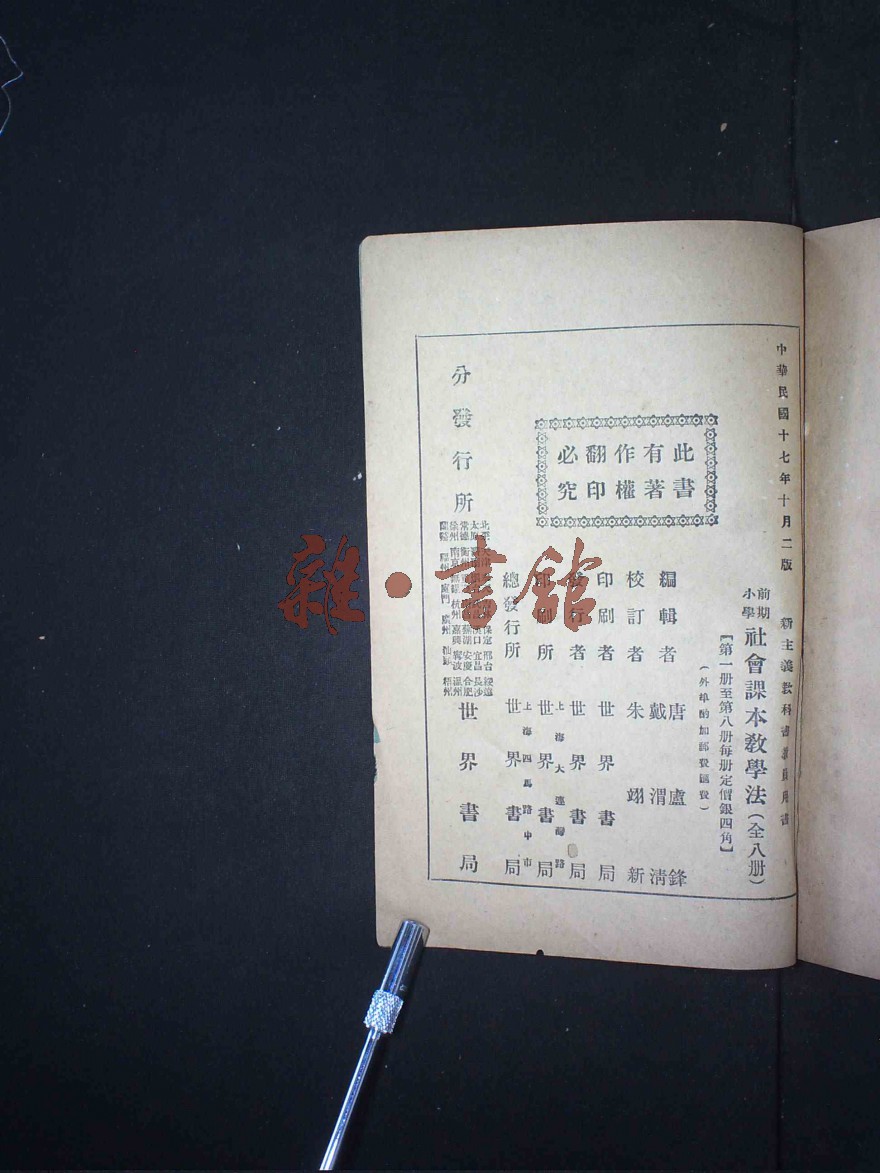 中華民國十七年十月二版
新主義教科書教員用書
前期
小學
社會課本教學法（全八册）
【第一册至第八册每册定價銀四角】
（外埠酌加郵費匯費）
此書
有著
作權
翻印
必究
編輯者 唐盧鋒
戴渭清
校訂者 朱翊新
印刷者 世界書局
發行者 世界書局
上海大連灣路
印刷所 世界書局
上海四馬路中市
總發行所 世界書局
分發行所
保定 邢台 綏遠
宜昌 長沙
蕪湖 安慶 合肥
徐州 南京 杭州 嘉興 寧波 溫州
廈門 廣州 汕頭 梧州
世界書局
雜·書館